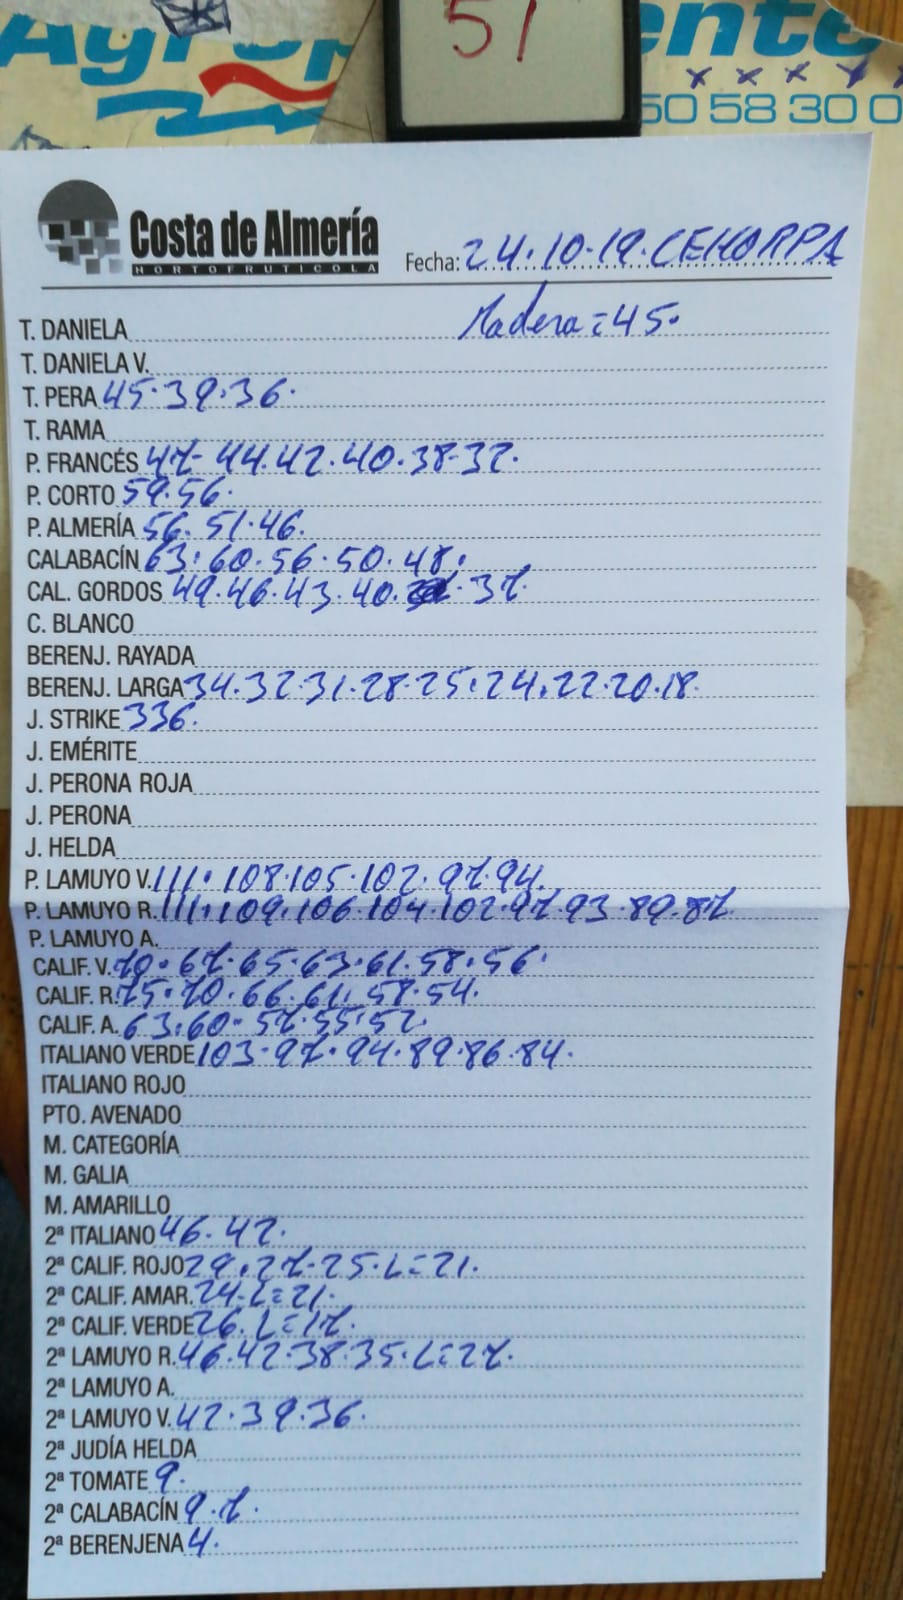 51
50 58 30 0
Costa de Almería
HORTOFRUTICOLA
Fecha: 24.10.19. CEHORPA
T. DANIELA Madera = 45.
T. DANIELA V.
T. PERA 45.39.36.
T. RAMA
P. FRANCÉS 47. 44.42.40.38.32.
P. CORTO 59.56.
P. ALMERÍA 56. 51.46.
CALABACÍN 63.60.56.50.48.
CAL. GORDOS 49.46.43.40. 37.
C. BLANCO
BERENJ. RAYADA
BERENJ. LARGA 34.32.31.28.25.24.22.20.18.
J. STRIKE 336.
J. EMÉRITE
J. PERONA ROJA
J. PERONA
J. HELDA
P. LAMUYO V. 111.108.105.102.97.94.
P. LAMUYO R. 111.109.106.104.102.97.93.89.87.
P. LAMUYO A.
CALIF. V. 70.67.65.63.61.58.56.
CALIF. R. 75.70.66.61.58.54.
CALIF. A. 63.60.57.55.52.
ITALIANO VERDE 103.97.94.89.86.84.
ITALIANO ROJO
PTO. AVENADO
M. CATEGORÍA
M. GALIA
M. AMARILLO
2ª ITALIANO 46.42.
2ª CALIF. ROJO 29.27.25.L=21.
2ª CALIF. AMAR. 24.L=21.
2ª CALIF. VERDE 26.L=17.
2ª LAMUYO R. 46.42.38.35.L=27.
2ª LAMUYO A.
2ª LAMUYO V. 42.39.36.
2ª JUDÍA HELDA
2ª TOMATE 9.
2ª CALABACÍN 9.7.
2ª BERENJENA 4.